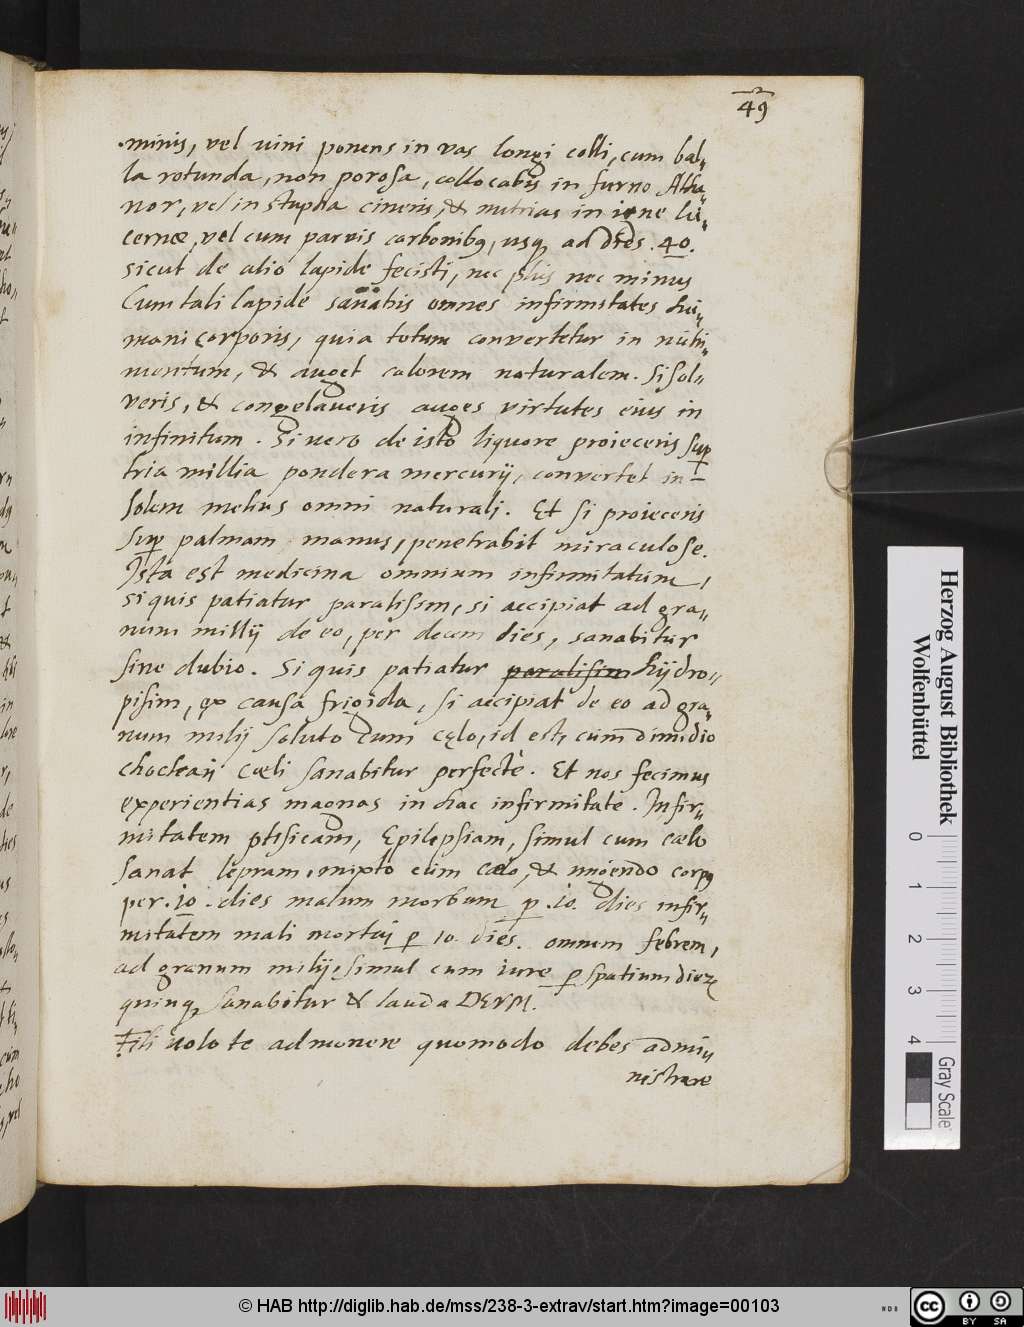 49
minis, vel vini ponens in vas longi colli, cum bal„
la rotunda, non porosa, collocabis in furno Atha„
nor, vel in stupha cineris, & nutrias in igne lu„
cernæ, vel cum parvis carbonibꝯ, usqꝫ ad dies .40.
sicut de alio lapide fecisti, nec plus nec minus
Cum tali lapide sanabis omnes infirmitates hu„
mani corporis, quia totum convertetur in nutri„
mentum, & auget calorem naturalem. Si sol„
veris, & congelaveris auges virtutes eius in
infinitum. Si vero de isto liquore proieceris sup
tria millia pondera mercurij, convertet in
Solem melius omni naturali. Et si proieceris
sup palmam manus, penetrabit miraculose.
Ista est medicina omnium infirmitatum,
si quis patiatur paralisim, si accipiat ad gra„
num millij de eo, per decem dies, sanabitur
sine dubio. Si quis patiatur paralisim hijdro„
pisim, ex causa frigida, si accipiat de eo ad gra„
num milij soluto cum cęlo, id est, cum dimidio
chocleari Cœli sanabitur perfectè. Et nos fecimus
experientias magnas in hac infirmitate. Infir„
mitatem ptisicam, Epilepsiam, simul cum cœlo
sanat lepram, mixto cum cœlo, & ungendo corpꝯ
per .10. dies malum morbum p .10. dies infir„
mitatem mali mortui p 10. dies. omnem febrem,
ad granum milij, simul cum iure p spatium dierꝝ
quinqꝫ sanabitur & lauda DEVM.
Fili volo te admonere quomodo debes admi„
nistrare
Herzog August Bibliothek
Wolfenbüttel
0 1 2 3 4
Gray Scale
© HAB http://diglib.hab.de/mss/238-3-extrav/start.htm?image=00103
cc BY SA